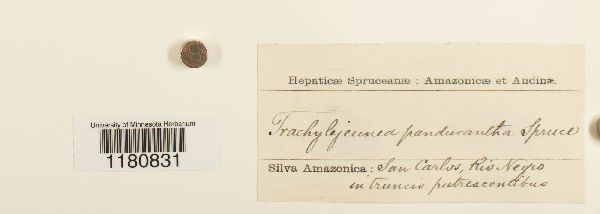 University of Minnesota Herbarium
1180831
Hepaticæ Spruceanæ : Amazonicæ et Andinæ.
Trachylejeunea pandurantha Spruce
Silva Amazonica : San Carlos, Rio Negro
in truncis putrescentibus